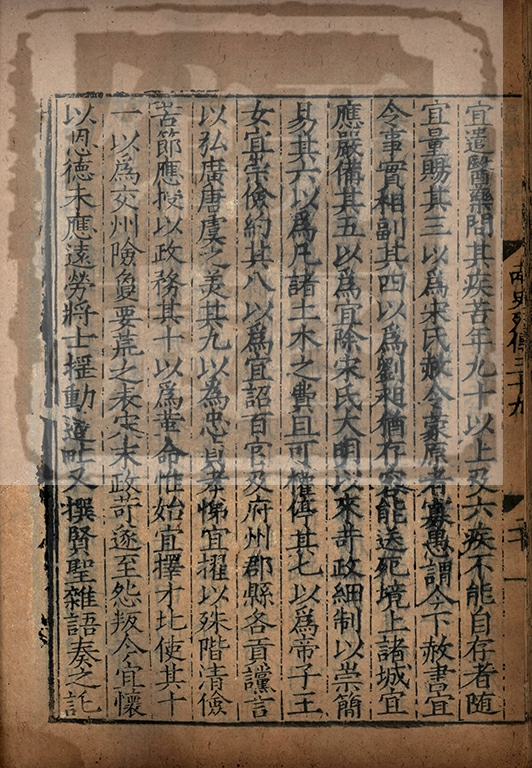 宜遣醫藥問其疾苦年九十以上及六疾不能自存者隨
宜量賜其三以爲宋氏赦令蒙原者寡愚謂今下赦書宜
令事實相副其四以爲劉昶猶存容能送死境上諸城宜
應嚴備其五以爲宜除宋氏大明以來苛政細制以崇簡
易其六以爲凡諸土木之費且可權停其七以爲帝子王
女宜崇儉約其八以爲宜詔百官及府州郡縣各貢讜言
以弘廣唐虞之美其九以為忠貞孝悌宜擢以殊階清儉
苦節應授以政務其十以爲革命惟始宜擇才北使其十
一以爲交州險夐要荒之表宋末政苛遂至怨叛今宜懷
以恩德未應遠勞將士搖動邊甿又撰賢聖雜語奏之託
南史列傳三十九